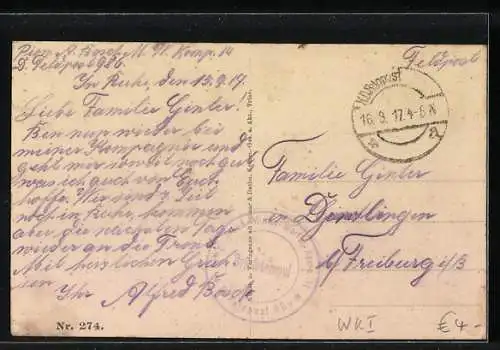 Pion. A. Bosch M. W. Komp. 14
D. Feldpost 986.
In Ruhe, den 15.9.17.
Liebe Familie Ginter!
Bin nun wieder bei
meiner Kompagnie und
geht mir soweit noch gut
was ich auch von Euch
hoffe. Wir sind z. Zeit
noch in Ruhe, kommen
aber die nächsten Tage
wieder an die Front.
Mit herzlichen Grüs-
sen
Ihr Alfred Bosch
Nr. 274.
Feldpost
K.D. Feldpost
16.9.17. 4-5 N
a
Familie Ginter
in Denzlingen
b/ Freiburg i/B
WK I
€ 4.-